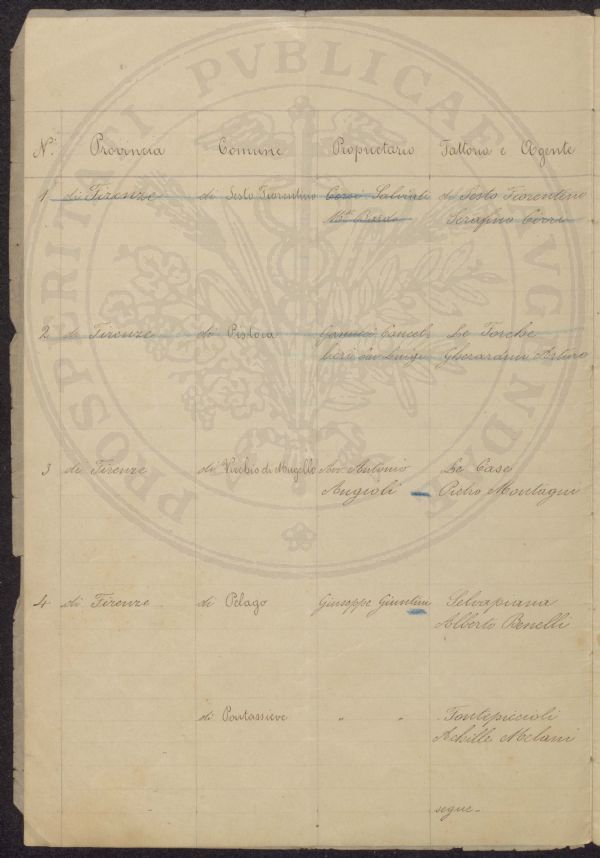 PROSPERITATI PVBLICAE AVGENDAE
N.° Provincia Comune Proprietario Fattoria e Agente
1 di Firenze di Sesto Fiorentino Corsi Salviati di Sesto Fiorentino
Serafino Cirri
2 di Firenze di Pistoia Le Torche
Gherardini Arturo
3 di Firenze di Vicchio di Mugello Avv. Antonio Le Case
Angioli Pietro Montagni
4 di Firenze di Pelago Giuseppe Giuntini Selvapiana
Alberto Benelli
di Pontassieve " " Fontepiccioli
Achille Melani
segue-